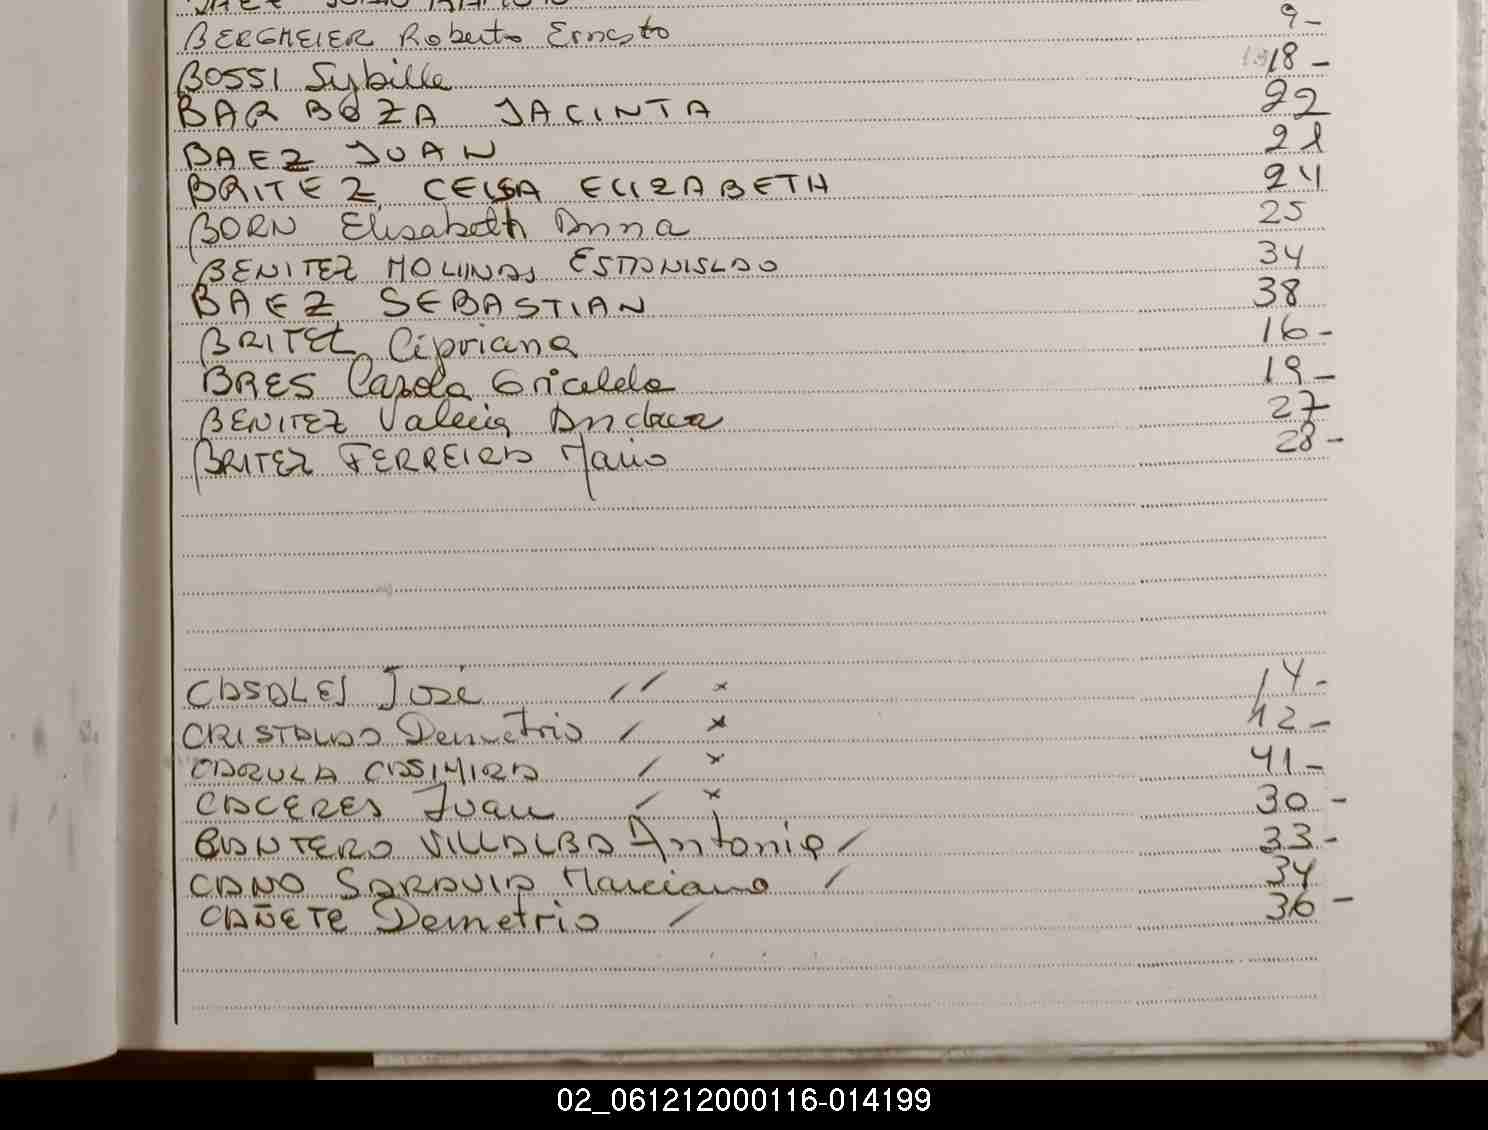 BAEZ JUAN
BERGMEIER Roberto Ernesto 9-
BOSSI Sybille 18-
BARBOZA JACINTA 22
BAEZ JUAN 21
BRITEZ CELSA ELIZABETH 24
BORN Elisabeth Anna 25
BENITEZ MOLINAS ESTANISLAO 34
BAEZ SEBASTIAN 38
BRITEZ Cipriana 16-
BRES Carola Gricelda 19-
BENITEZ Valeria Andrea 27
BRITEZ FERREIRA Mario 28-
CASALES José // x 14-
CRISTALDO Demetrio / x 12-
CARULA CASIMIRA / x 41-
CACERES Juan / x 30-
CANTERO VILLALBA Antonio / 33-
CANO SARAVIA Marciano / 34
CAÑETE Demetrio / 36-
02_061212000116-014199